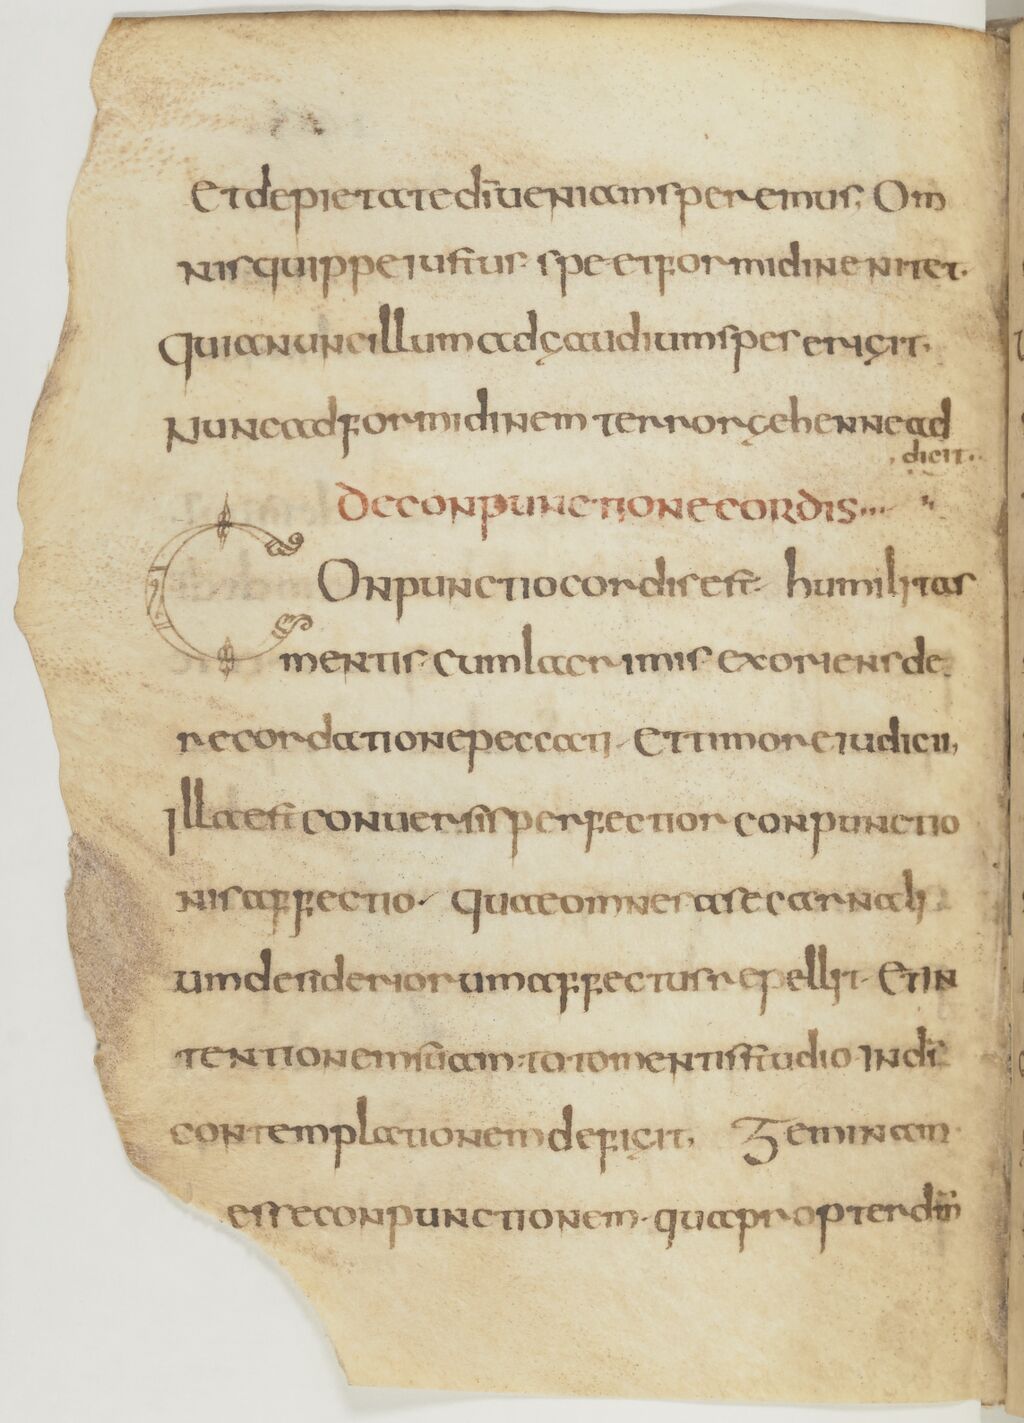 Et de pietate dī ueniam speremus. Om
nis quippe iustus spe et formidine nitet.
Quia nunc illum ad gaudium spes erigit.
Nunc ad formidinem terror gehenne ad
dicit.
De conpunctione cordis
Conpunctio cordis est humilitas
mentis cum lacrimis exoriens de
recordatione peccati. Et timore iudicii,
illa est conuersis perfectior conpunctio
nis affectio. quae omnes a se carnali
um desideriorum affectus repellit. Et in
tentionem suam toto mentis studio in dī
contemplationem deficit. Geminam
esse conpunctionem. qua propter dm̄